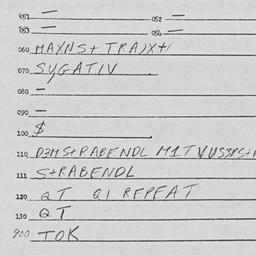 051 — 052 —
053 — 054 —
060 MAYNS+ TRAJX+
070 SYGATIV
080 —
090 —
100 $
110 D3M S+RABENDL M1T VUS3RS+
111 S+RABENDL
120 QT Q1 REPEAT
130 QT
900 TOK